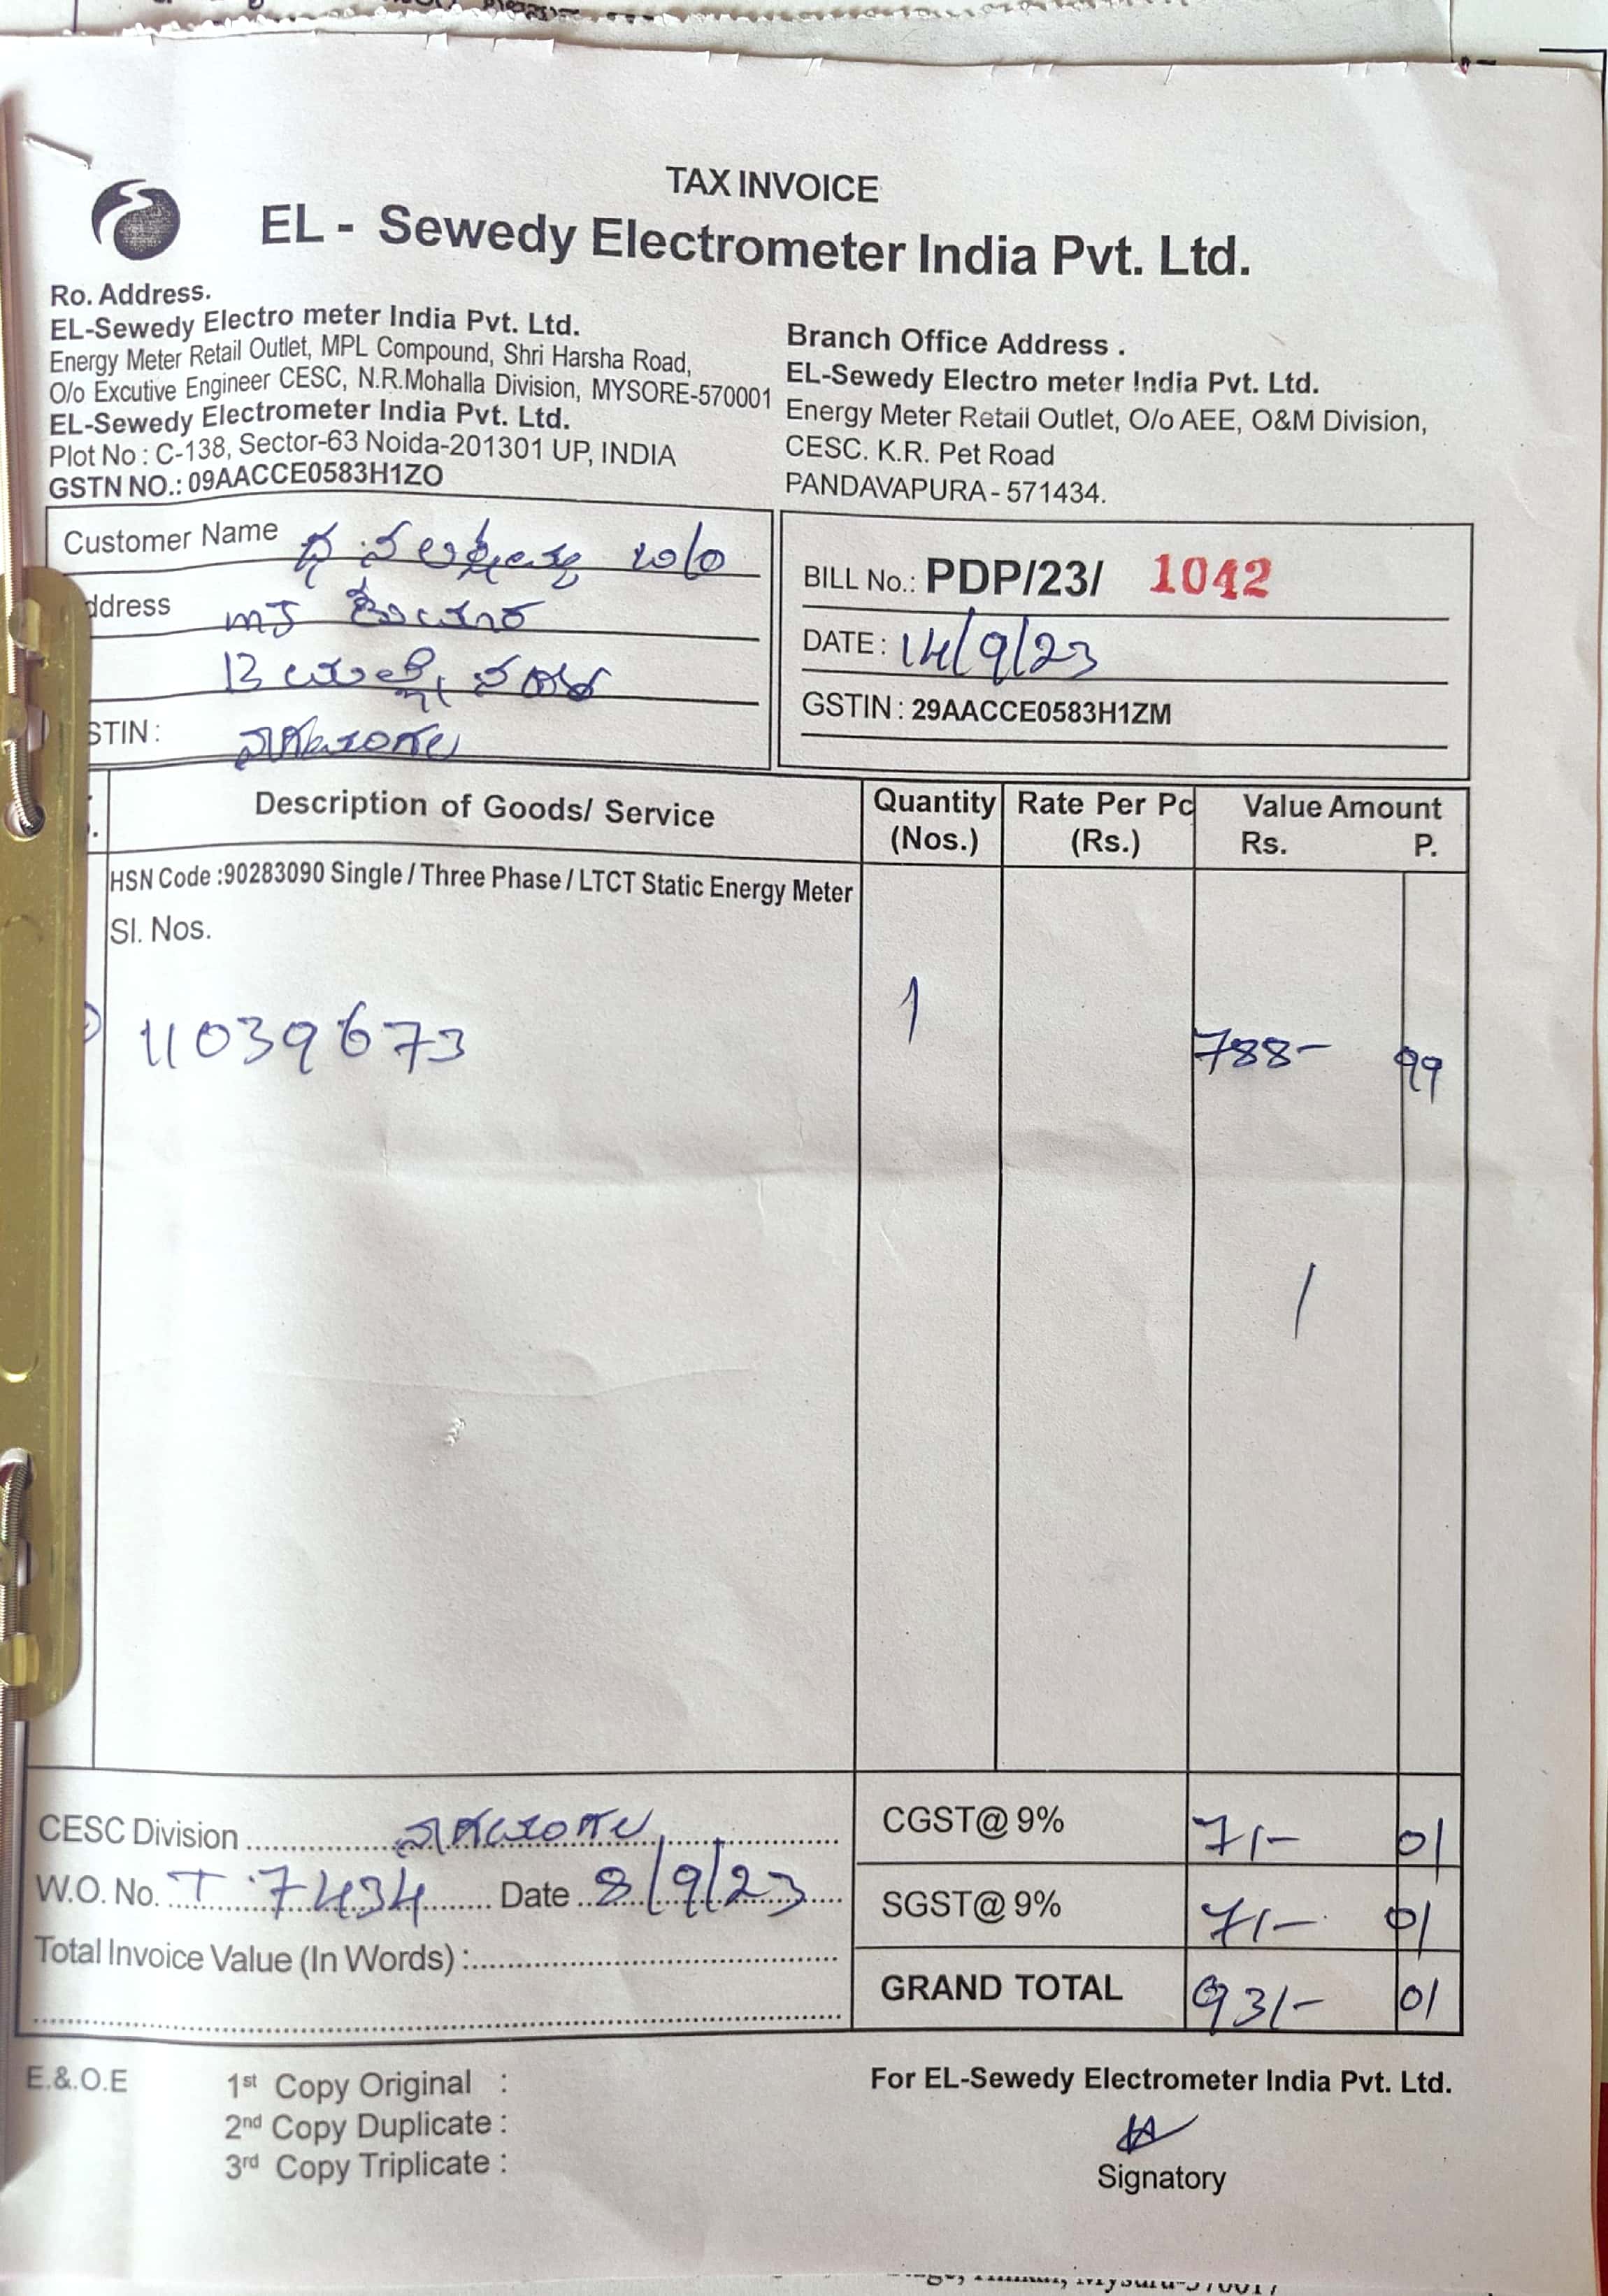 TAX INVOICE
EL - Sewedy Electrometer India Pvt. Ltd.
Ro. Address.
EL-Sewedy Electro meter India Pvt. Ltd.
Energy Meter Retail Outlet, MPL Compound, Shri Harsha Road,
O/o Excutive Engineer CESC, N.R.Mohalla Division, MYSORE-570001
EL-Sewedy Electrometer India Pvt. Ltd.
Plot No : C-138, Sector-63 Noida-201301 UP, INDIA
GSTN NO.: 09AACCE0583H1ZO
Branch Office Address .
EL-Sewedy Electro meter India Pvt. Ltd.
Energy Meter Retail Outlet, O/o AEE, O&M Division,
CESC. K.R. Pet Road
PANDAVAPURA - 571434.
Customer Name
ddress
STIN :
ನಾಗಮಂಗಲ
BILL No.: PDP/23/ 1042
DATE : 14/9/23
GSTIN : 29AACCE0583H1ZM
Description of Goods/ Service
Quantity (Nos.)
Rate Per Pc (Rs.)
Value Amount
Rs. P.
HSN Code :90283090 Single / Three Phase / LTCT Static Energy Meter
Sl. Nos.
11039673 1 788- 99
CESC Division ನಾಗಮಂಗಲ
W.O. No. T 7434 Date 8/9/23
Total Invoice Value (In Words) :
CGST@ 9% 71- 01
SGST@ 9% 71- 01
GRAND TOTAL 931- 01
E.&.O.E
1st Copy Original :
2nd Copy Duplicate :
3rd Copy Triplicate :
For EL-Sewedy Electrometer India Pvt. Ltd.
Signatory